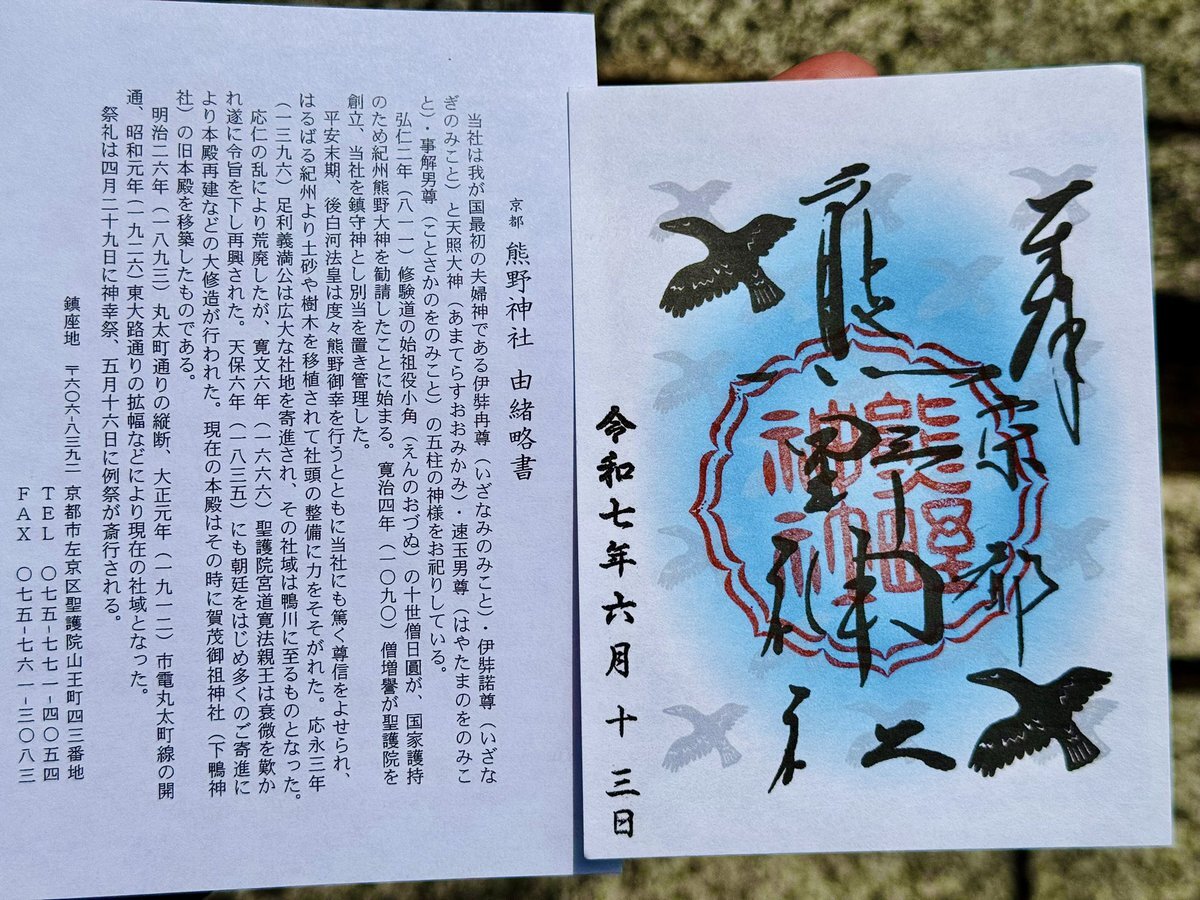 京都 熊野神社 由緒略書
当社は我が国最初の夫婦神である伊弉冉尊（いざなみのみこと）・伊弉諾尊（いざな
ぎのみこと）と天照大神（あまてらすおおみかみ）・速玉男尊（はやたまのをのみこ
と）・事解男尊（ことさかのをのみこと）の五柱の神様をお祀りしている。
弘仁二年（八一一）修験道の始祖役小角（えんのおづぬ）の十世僧日圓が、国家護持
のため紀州熊野大神を勧請したことに始まる。寛治四年（一〇九〇）僧増譽が聖護院を
創立、当社を鎮守神とし別当を置き管理した。
平安末期、後白河法皇は度々熊野御幸を行うとともに当社にも篤く尊信をよせられ、
はるばる紀州より土砂や樹木を移植されて社頭の整備に力をそそがれた。応永三年
（一三九六）足利義満公は広大な社地を寄進され、その社域は鴨川に至るものとなった。
応仁の乱により荒廃したが、寛文六年（一六六六）聖護院宮道寛法親王は衰微を歎か
れ遂に令旨を下し再興された。天保六年（一八三五）にも朝廷をはじめ多くのご寄進に
より本殿再建などの大修造が行われた。現在の本殿はその時に賀茂御祖神社（下鴨神
社）の旧本殿を移築したものである。
明治二六年（一八九三）丸太町通りの縦断、大正元年（一九一二）市電丸太町線の開
通、昭和元年（一九二六）東大路通りの拡幅などにより現在の社域となった。
祭礼は四月二十九日に神幸祭、五月十六日に例祭が斎行される。
鎮座地 〒六〇六-八三九二 京都市左京区聖護院山王町四三番地
ＴＥＬ 〇七五-七七一-四〇五四
ＦＡＸ 〇七五-七六一-三〇八三
奉拝
京都
熊野神社
熊野
神社
令和七年六月十三日